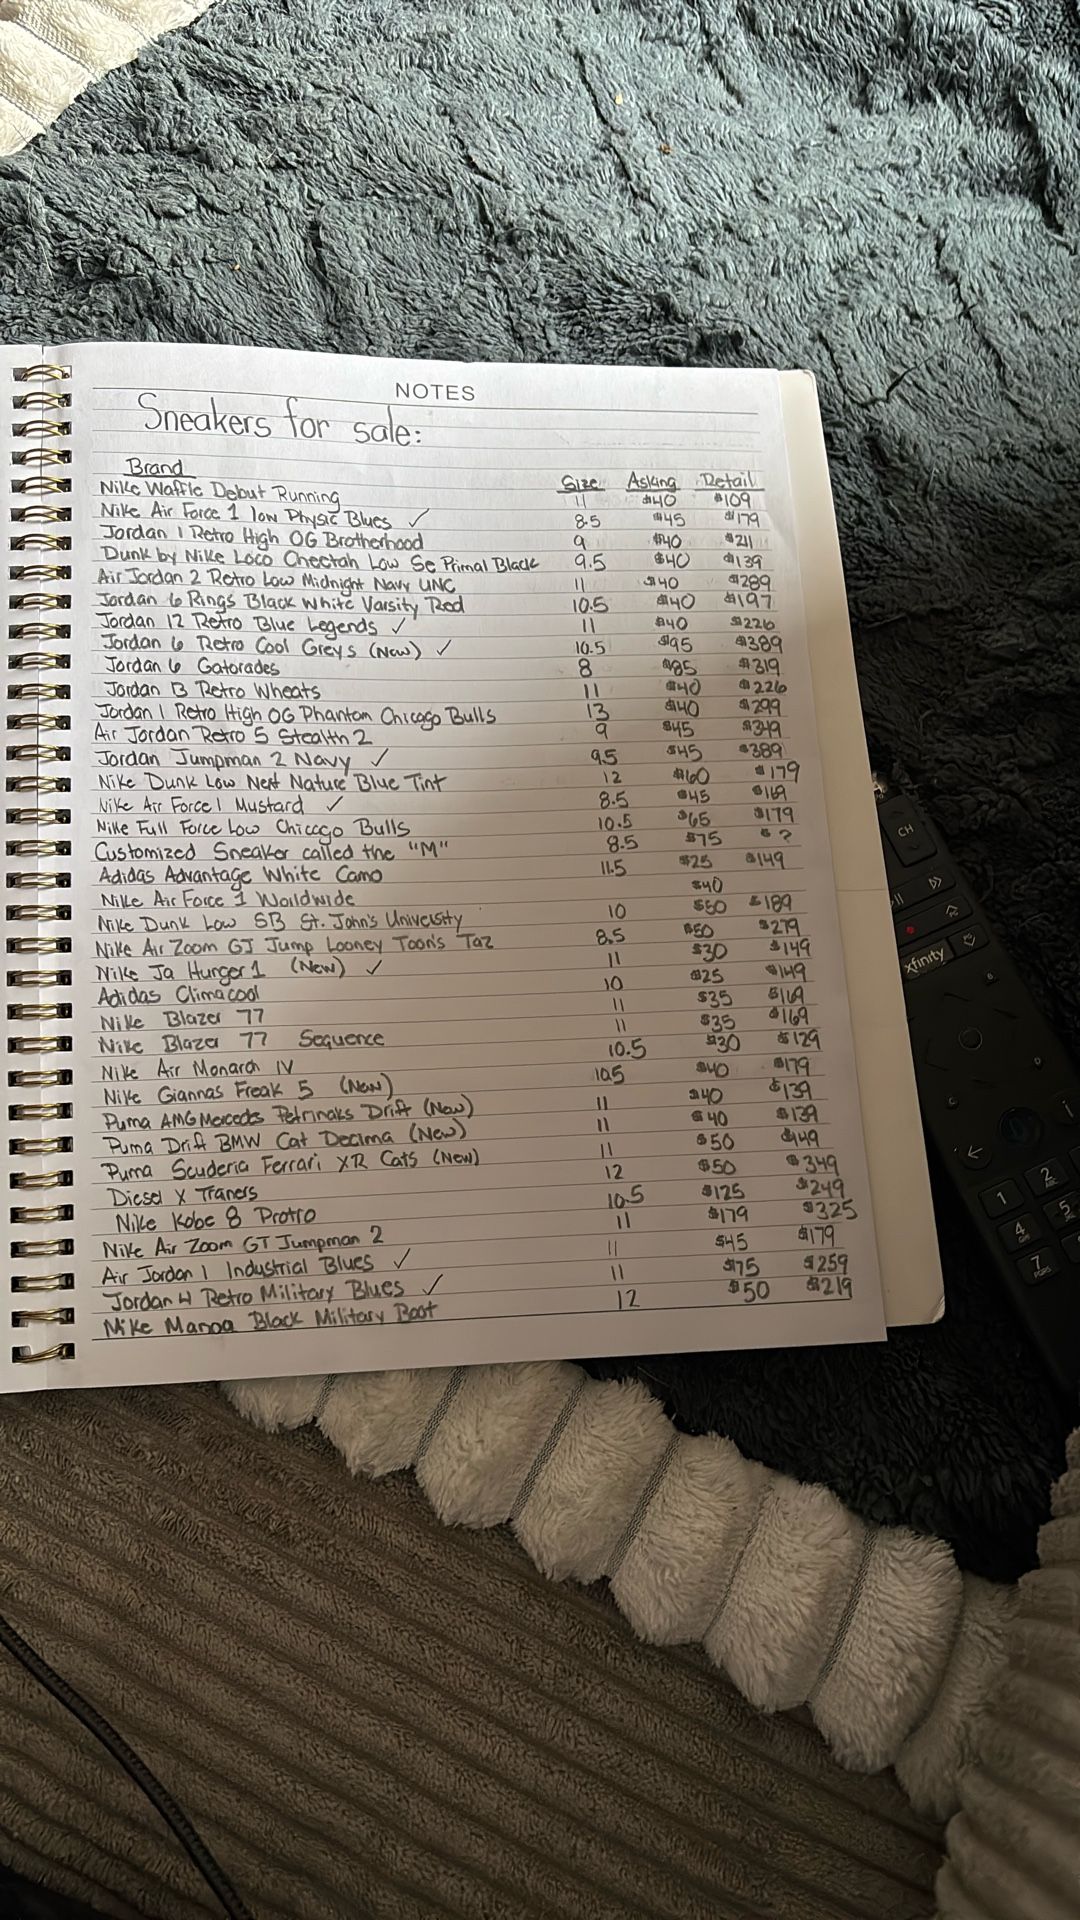 NOTES
Sneakers for sale:
Brand Size Asking Retail
Nike Waffle Debut Running 11 $40 $109
Nike Air Force 1 low Physic Blues ✓ 8.5 $45 $179
Jordan 1 Retro High OG Brotherhood 9 $40 $211
Dunk by Nike Loco Cheetah Low Se Primal Black 9.5 $40 $139
Air Jordan 2 Retro Low Midnight Navy UNC 11 $40 $289
Jordan 6 Rings Black White Varsity Red 10.5 $40 $197
Jordan 12 Retro Blue Legends ✓ 11 $40 $226
Jordan 6 Retro Cool Greys (New) ✓ 10.5 $95 $389
Jordan 6 Gatorades 8 $85 $319
Jordan 13 Retro Wheats 11 $40 $226
Jordan 1 Retro High OG Phantom Chicago Bulls 13 $40 $299
Air Jordan Retro 5 Stealth 2 9 $45 $349
Jordan Jumpman 2 Navy ✓ 9.5 $45 $389
Nike Dunk Low Next Nature Blue Tint 12 $60 $179
Nike Air Force 1 Mustard ✓ 8.5 $45 $169
Nike Full Force Low Chicago Bulls 10.5 $65 $179
Customized Sneaker called the "M" 8.5 $75 $ ?
Adidas Advantage White Camo 11.5 $25 $149
Nike Air Force 1 Worldwide $40
Nike Dunk Low SB St. John's University 10 $50 $189
Nike Air Zoom GJ Jump Looney Toon's Taz 8.5 $50 $279
Nike Ja Hunger 1 (New) ✓ 11 $30 $149
Adidas Climacool 10 $25 $149
Nike Blazer 77 11 $35 $169
Nike Blazer 77 Sequence 11 $35 $169
Nike Air Monarch IV 10.5 $30 $129
Nike Giannas Freak 5 (New) 10.5 $40 $179
Puma AMG Mercedes Petrinaks Drift (New) 11 $40 $139
Puma Drift BMW Cat Decima (New) 11 $40 $139
Puma Scuderia Ferrari XR Cats (New) 11 $50 $149
Diesel X Traners 12 $50 $349
Nike Kobe 8 Protro 10.5 $125 $249
Nike Air Zoom GT Jumpman 2 11 $179 $325
Air Jordan 1 Industrial Blues ✓ 11 $45 $179
Jordan 4 Retro Military Blues ✓ 11 $75 $259
Nike Manoa Black Military Boot 12 $50 $219
CH
xfinity
1 2 ABC
4 GHI 5
7 PQRS